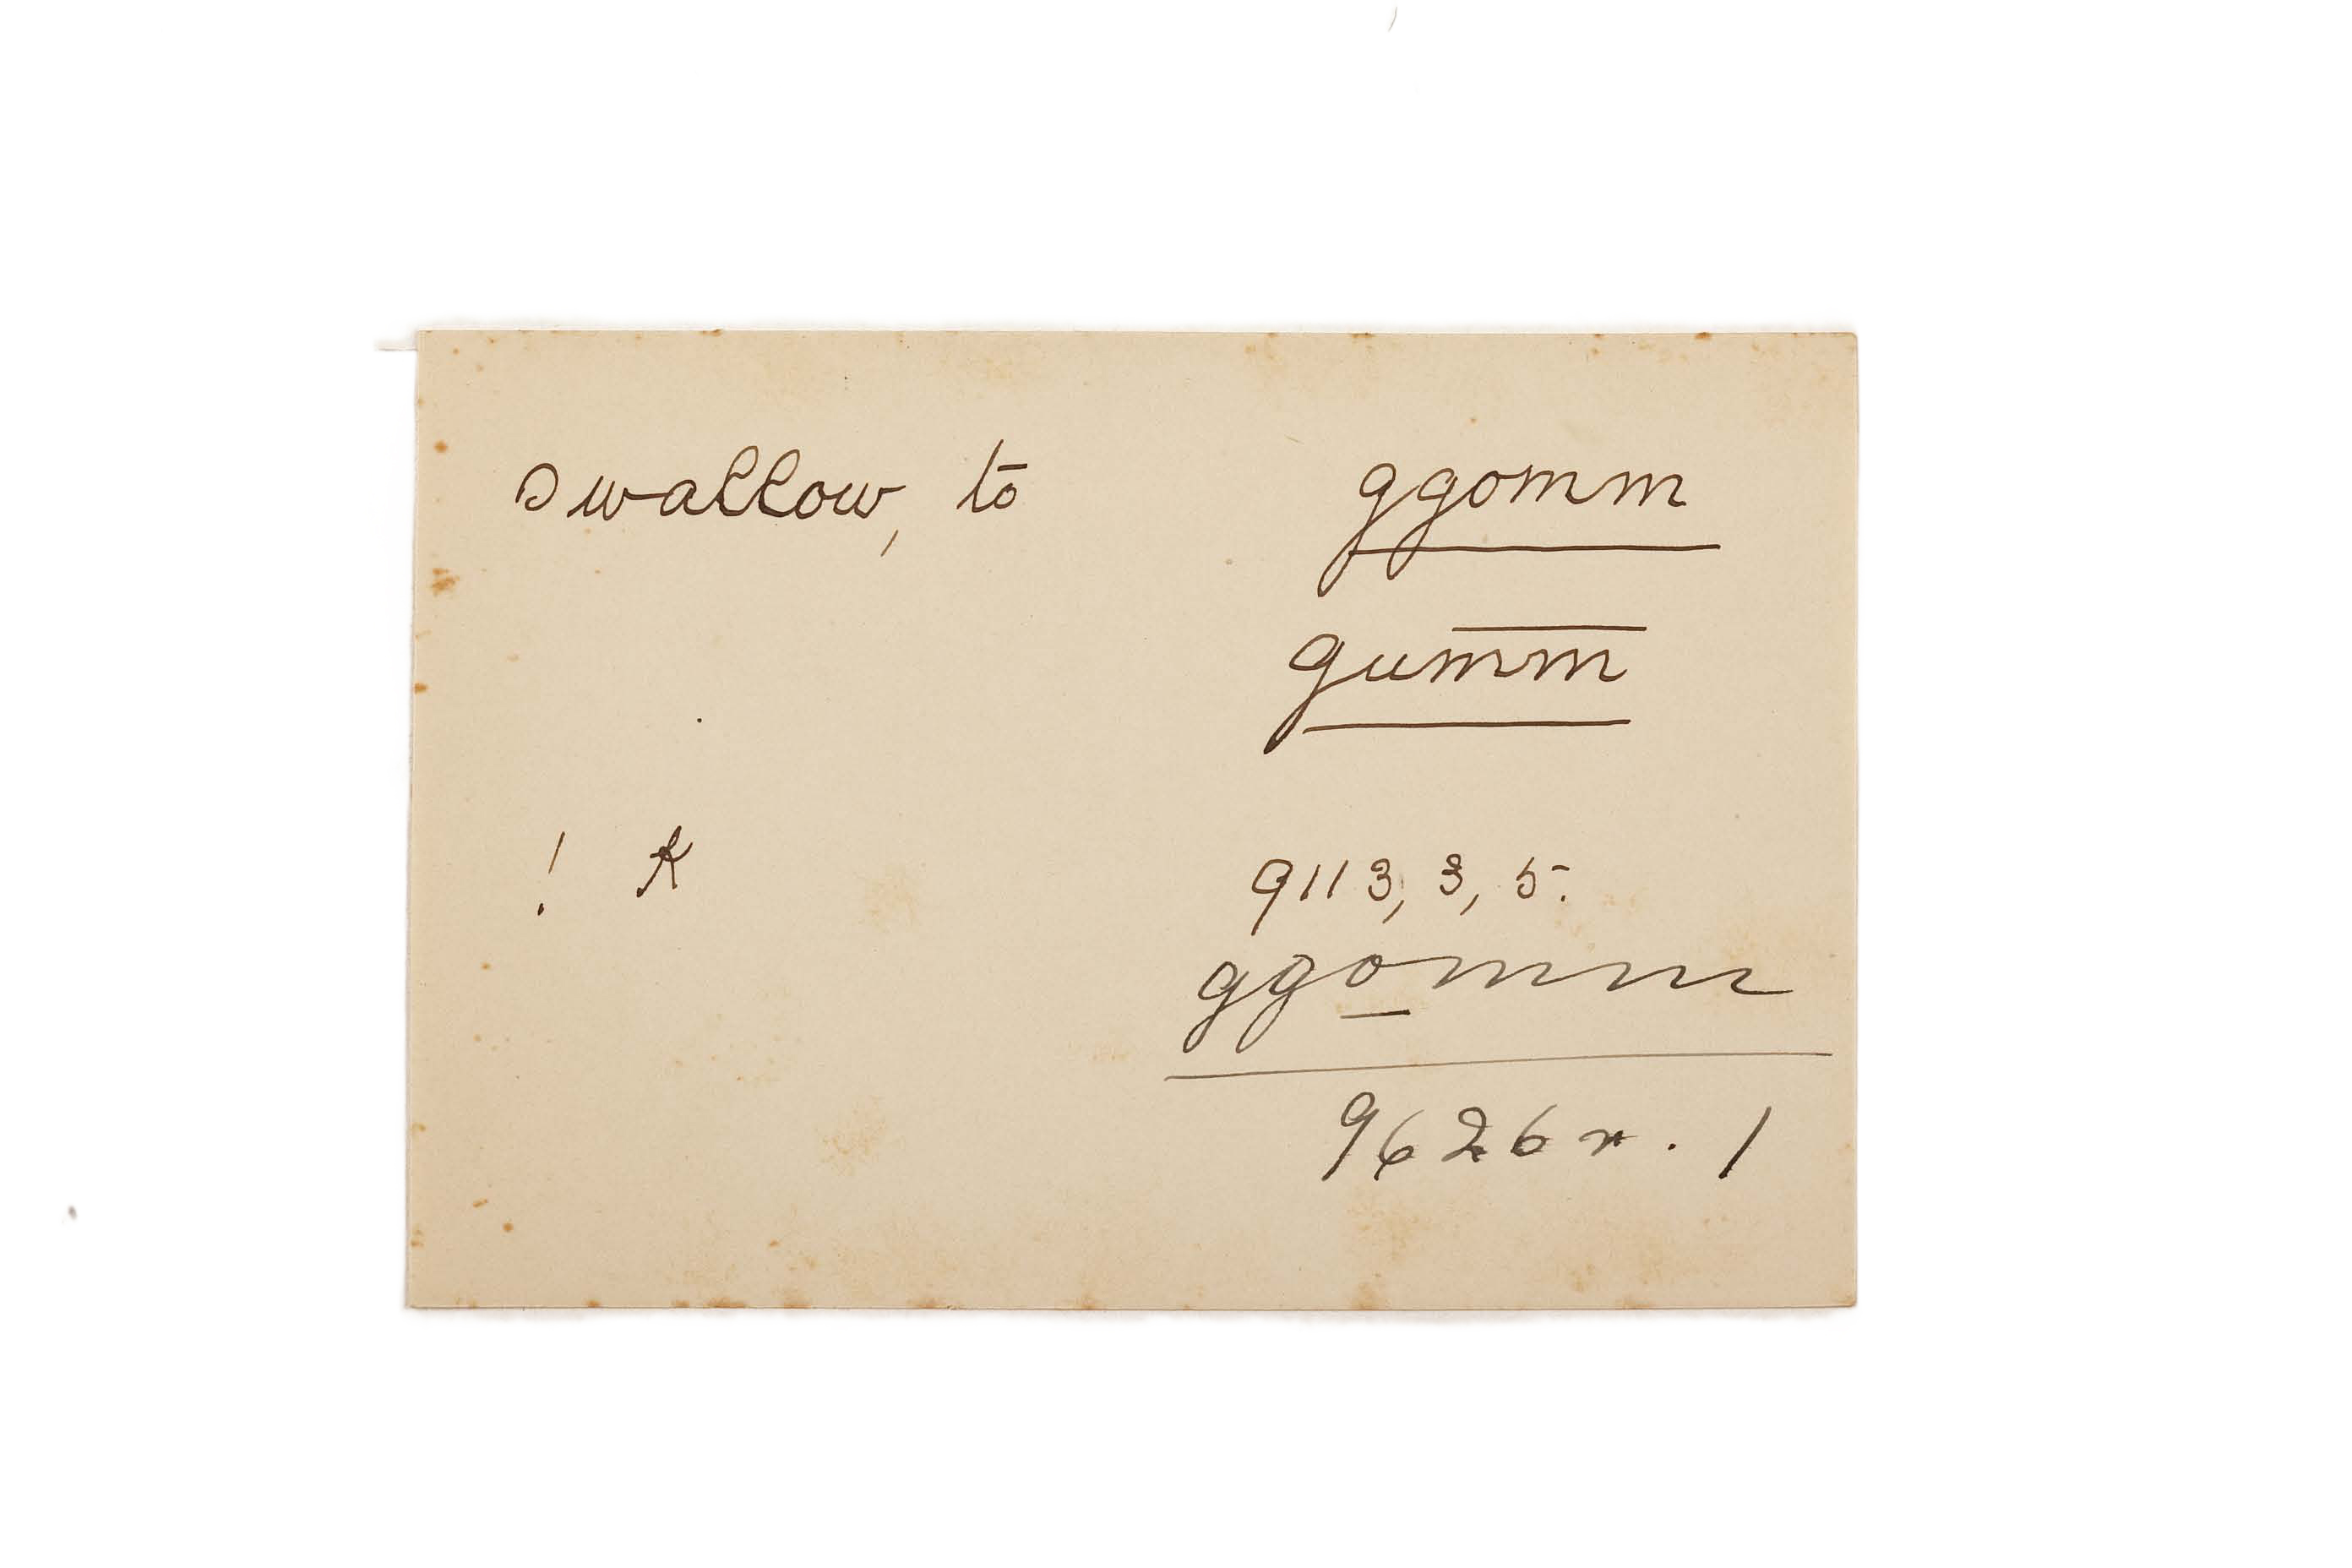 swallow, to ggomm
gumm
! K 9113, 3, 5.
ggomm
9626 r. 1